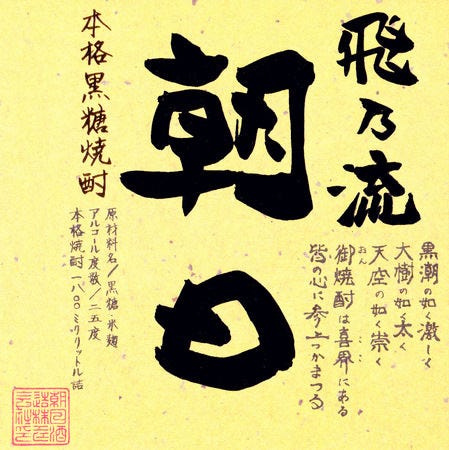 飛乃流
朝日
黒潮の如く激しく
大樹の如く太く
天空の如く崇く
御焼酎は喜界にある
おん
皆の心に参上つかまつる
本格黒糖焼酎
原材料名／黒糖・米麹
アルコール度数／二五度
本格焼酎一八〇〇ミリリットル詰